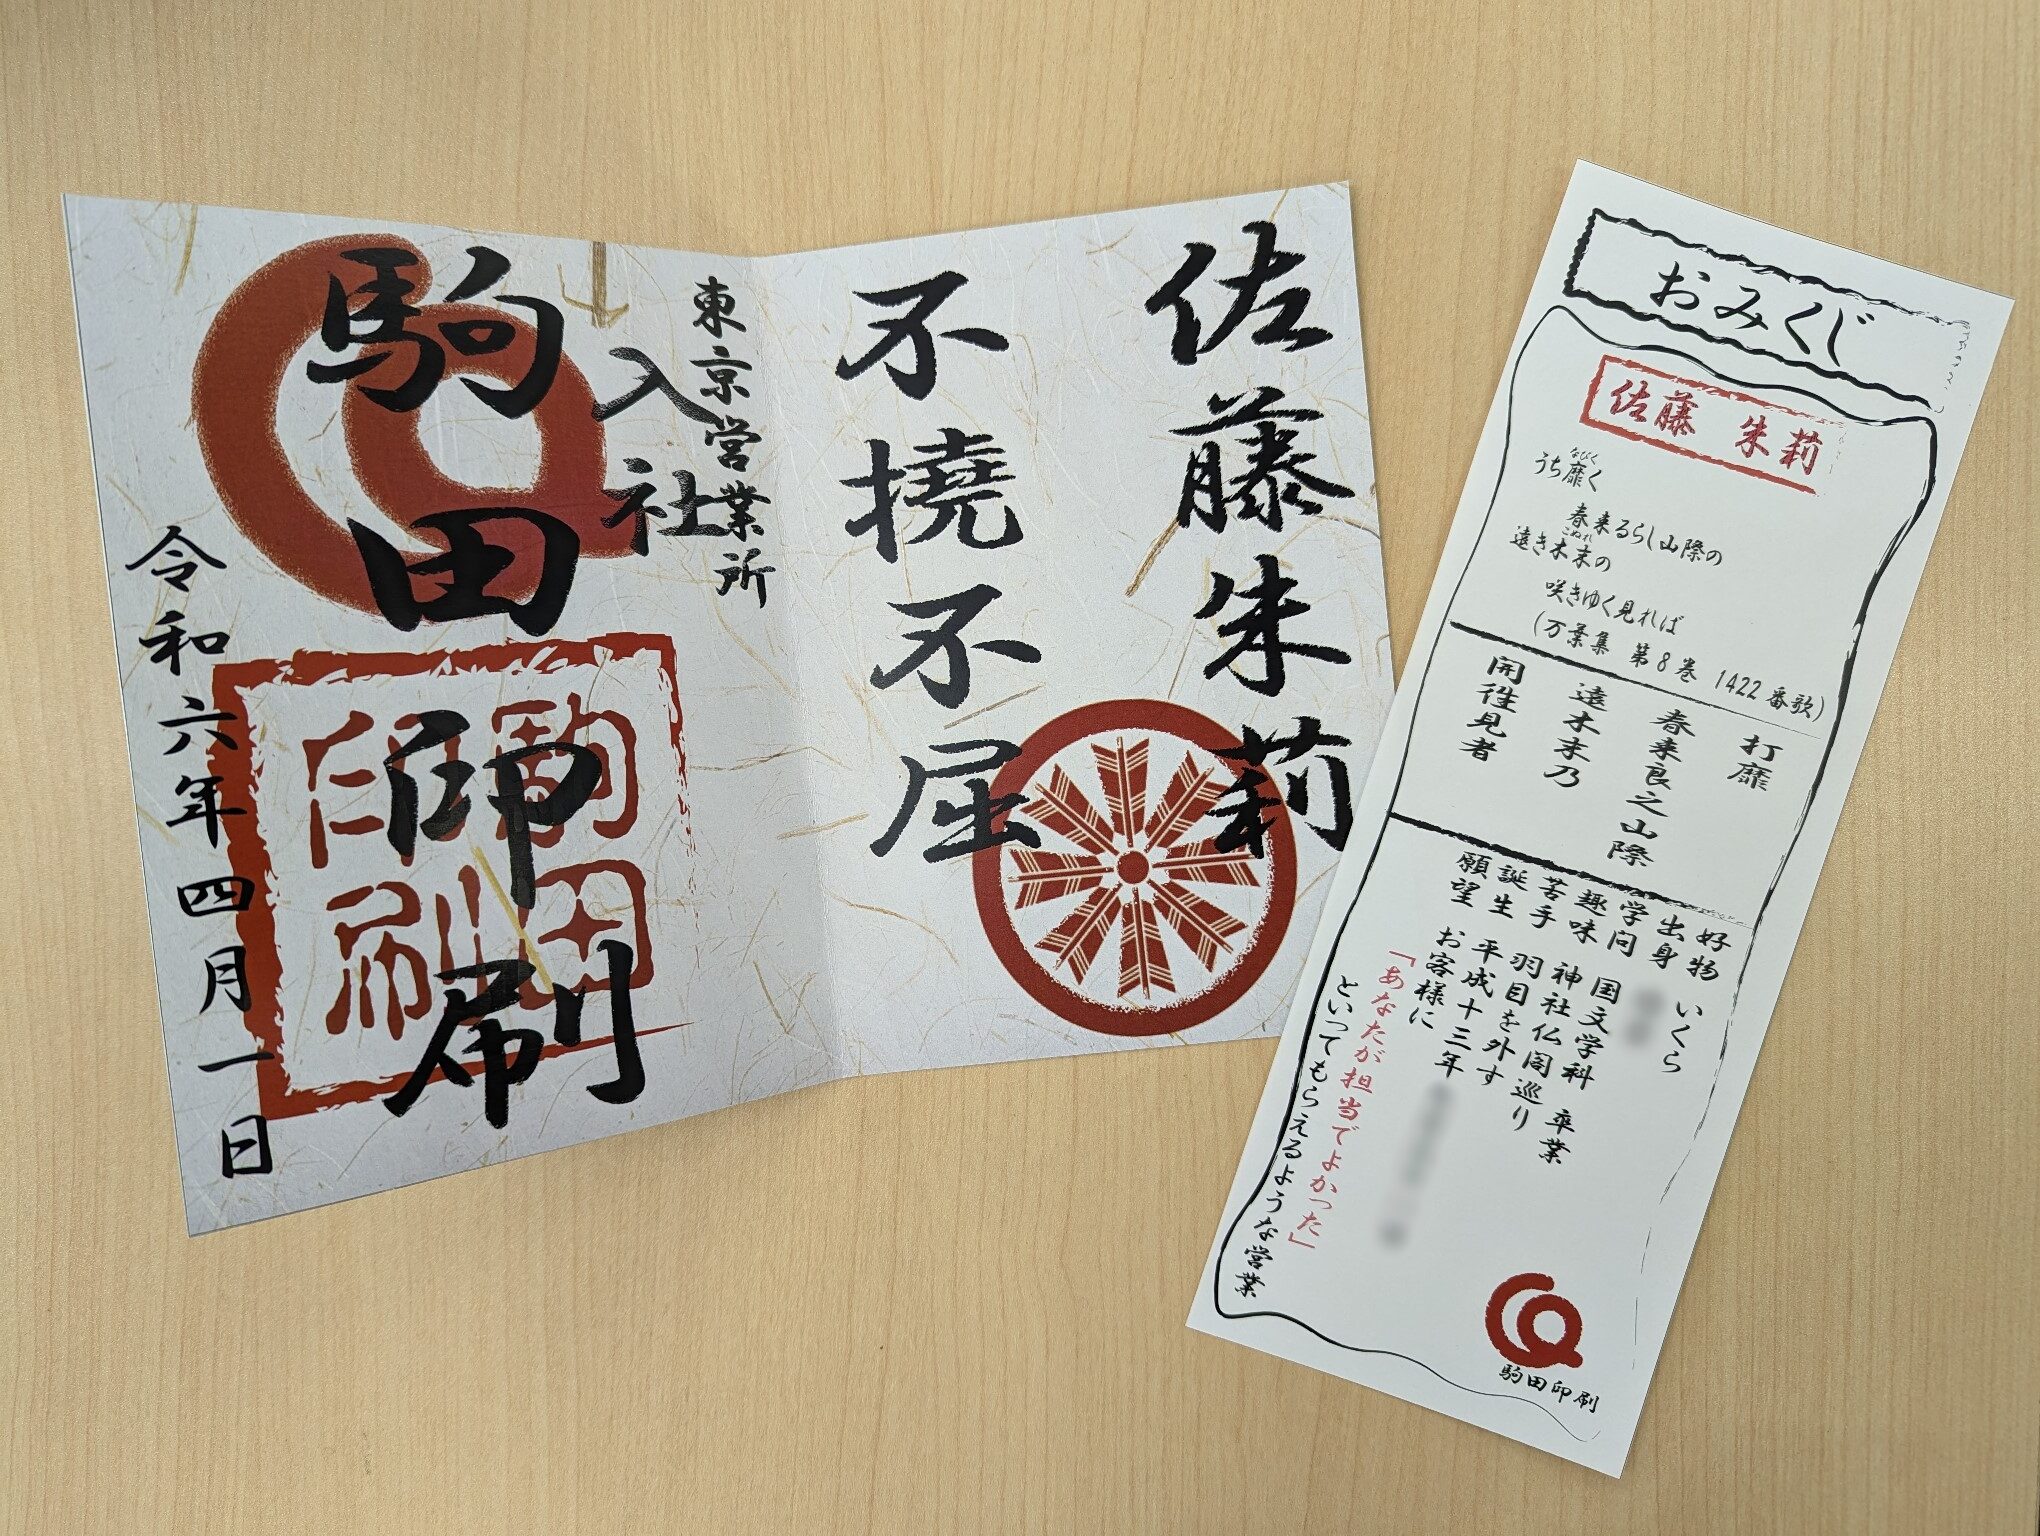 佐藤朱莉
不撓不屈
東京営業所
入社
駒田印刷
駒田
印刷
令和六年四月一日
おみくじ
佐藤 朱莉
うち靡く
なびく
春来るらし山際の
遠き木末の
こぬれ
咲きゆく見れば
(万葉集 第8巻 1422番歌)
打靡
春来良之山際
遠木末乃
開徃見者
好物 いくら
出身
学問 国文学科 卒業
趣味 神社仏閣巡り
苦手 羽目を外す
誕生 平成十三年
願望 お客様に
「あなたが担当でよかった」
といってもらえるような営業
駒田印刷